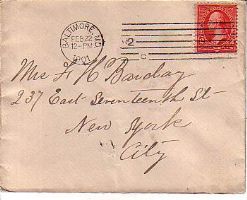 BALTIMORE, MD.
FEB 22
12-PM
2
C
Mrs F K Barclay
237 East Seventeenth St
New York
City